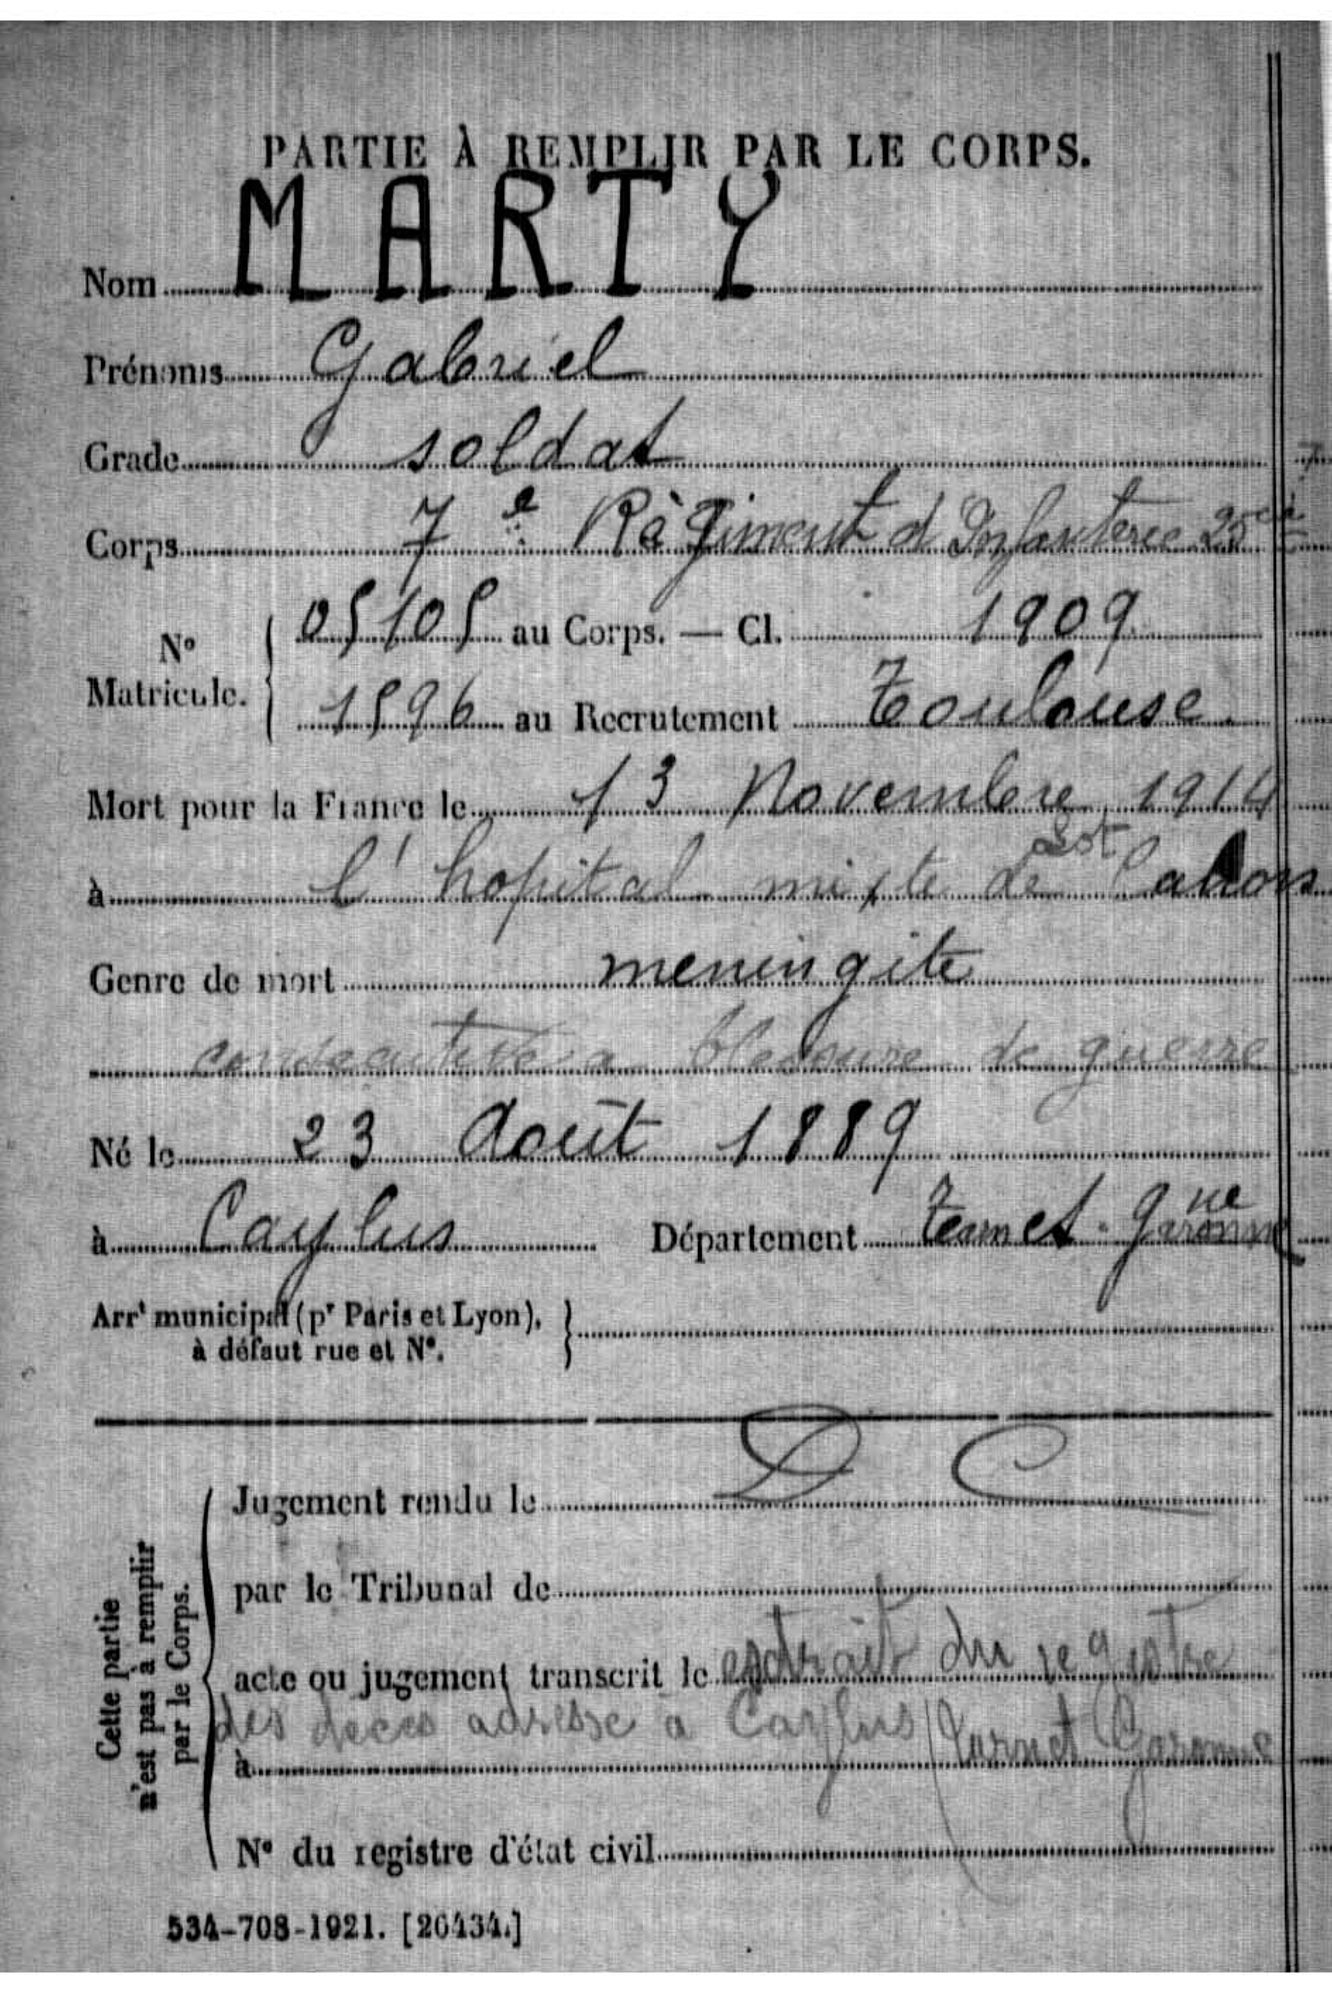 PARTIE À REMPLIR PAR LE CORPS.
Nom MARTY
Prénoms Gabriel
Grade soldat
Corps 7e Règiment d'Infanterie 25e Cie
No Matricule. { 05105 au Corps. — Cl. 1909
1596 au Recrutement Toulouse
Mort pour la France le 13 Novembre 1914
Lot
à l'hopital mixte de Cahors
Genre de mort meningite
consecutive a blessure de guerre
Né le 23 Août 1889
à Caylus Département Tarn et Garonne
Arrt municipal (pr Paris et Lyon),
à défaut rue et No.
D C
Jugement rendu le
par le Tribunal de
acte ou jugement transcrit le extrait du registre
des deces adresse a Caylus (Tarn et Garonne
à
No du registre d'état civil
Cette partie
n'est pas à remplir
par le Corps.
534-708-1921. [26434.]